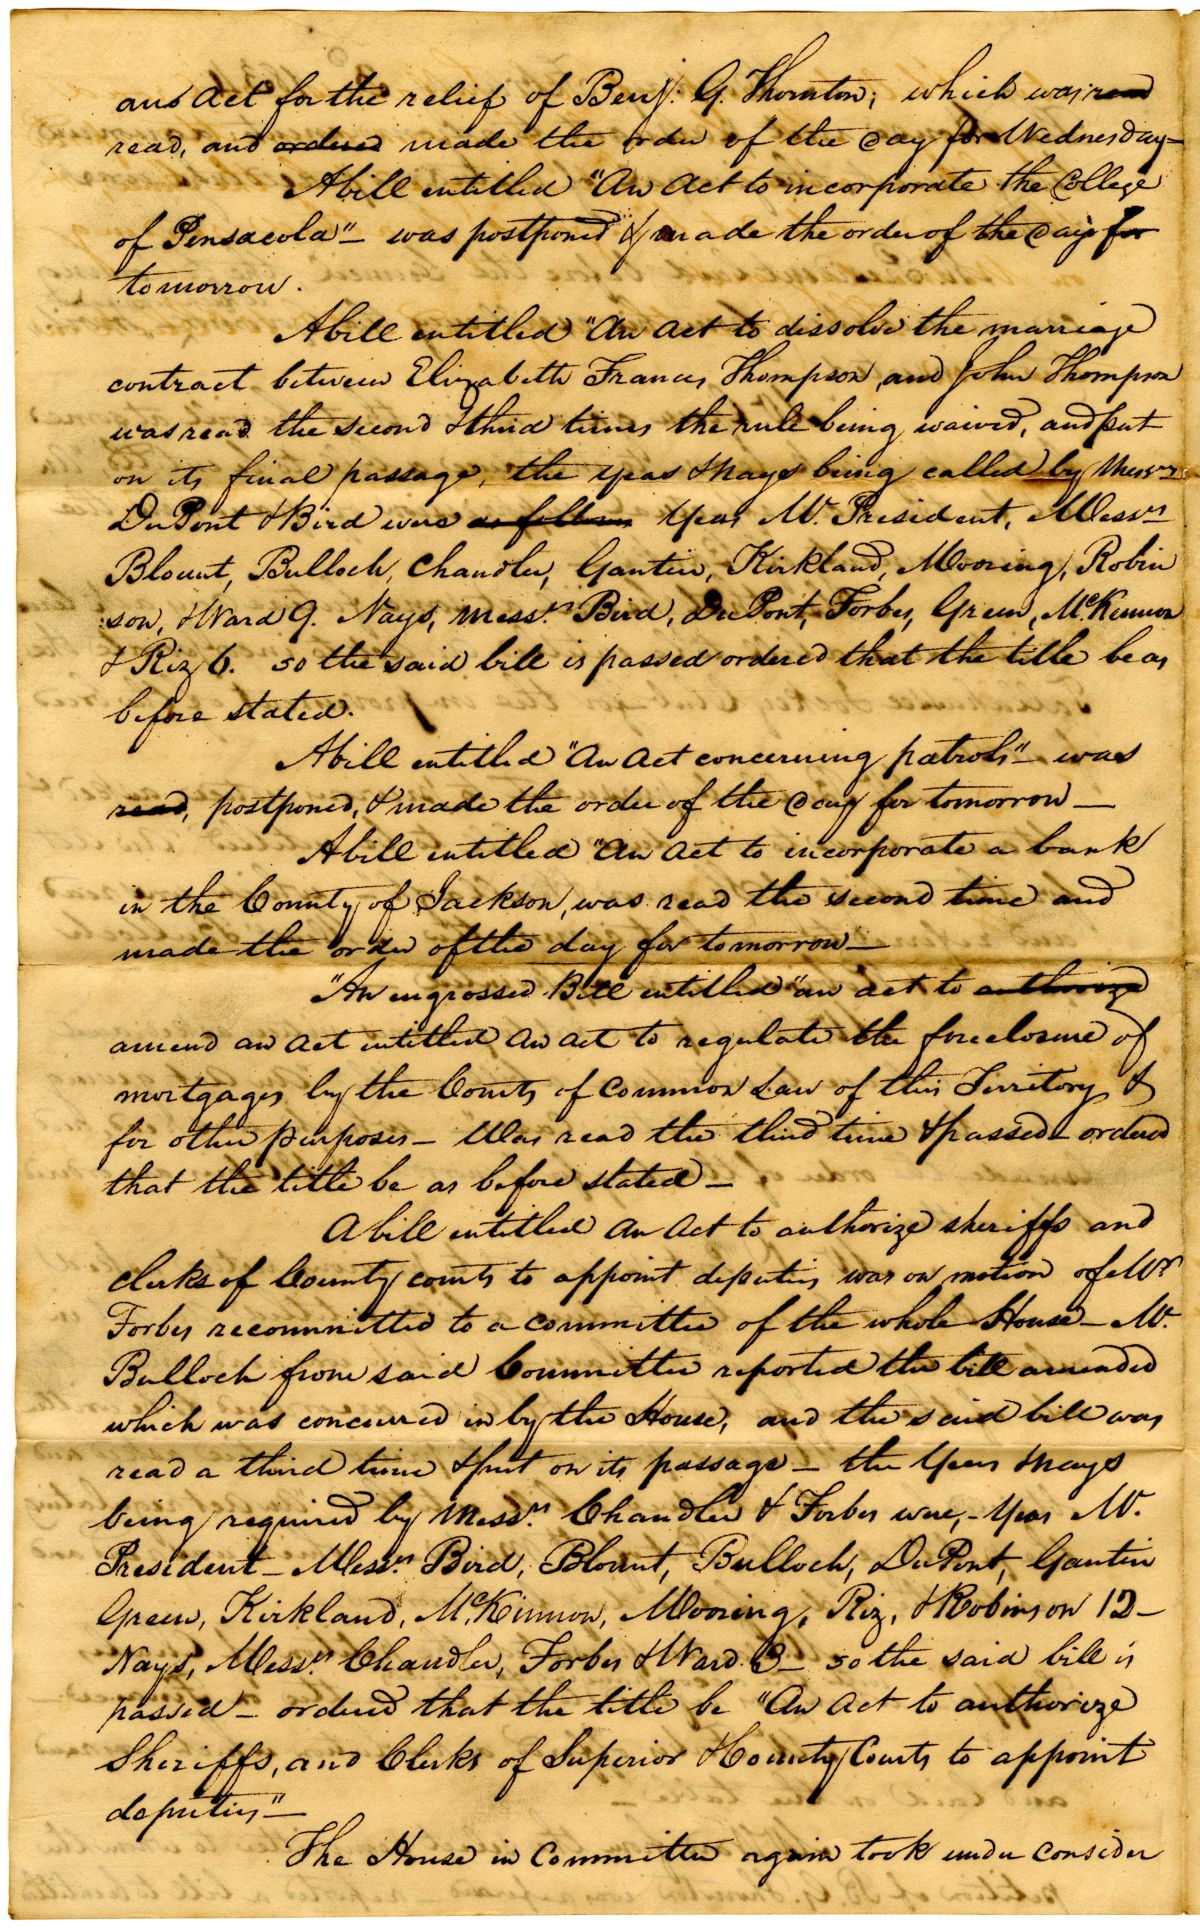 and act for the relief of Benj. G. Thornton; which was read
read, and ordered made the order of the day for Wednesday—
A bill entitled "An Act to incorporate the College
of Pensacola"— was postponed & made the order of the day for
tomorrow.
A bill entitled "An act to dissolve the marriage
contract between Elizabeth Frances Thompson, and John Thompson
was read the second & third times the rule being waived, and put
on its final passage, the yeas & nays being called by Messrs
DuPont & Bird were as follows Yeas Mr. President, Messrs
Blount, Bulloch, Chandler, Gautier, Kirkland, Mooring, Robin
son, & Ward 9. Nays, Messrs. Bird, DuPont, Forbes, Green, McKinnon
& Riz 6. so the said bill is passed ordered that the title be as
before stated.
A bill entitled "An act concerning patrols"— was
read, postponed, & made the order of the day for tomorrow—
A bill entitled "An act to incorporate a bank
in the County of Jackson, was read the second time and
made the order of the day for tomorrow—
"An engrossed Bill entitled "an act to authorize
amend an act entitled An act to regulate the foreclosure of
mortgages by the Courts of Common Law of this Territory, &
for other purposes— Was read the third time & passed— ordered
that the title be as before stated—
A bill entitled An Act to authorize sheriffs and
clerks of County courts to appoint deputies was on motion of Mr
Forbes recommitted to a committee of the whole House— Mr.
Bulloch from said Committee reported the bill amended
which was concurred in by the House, and the said bill was
read a third time & put on its passage— the Yeas & nays
being required by Messrs. Chandler & Forbes were,— Yeas Mr.
President— Messrs. Bird, Blount, Bulloch, DuPont, Gautier
Green, Kirkland, McKinnon, Mooring, Riz, & Robinson 12—
Nays, Messrs. Chandler, Forbes & Ward 3— so the said bill is
passed— ordered that the title be "An Act to authorize
Sheriffs, and Clerks of Superior & County Courts to appoint
deputies"—
The House in Committee again took under consider